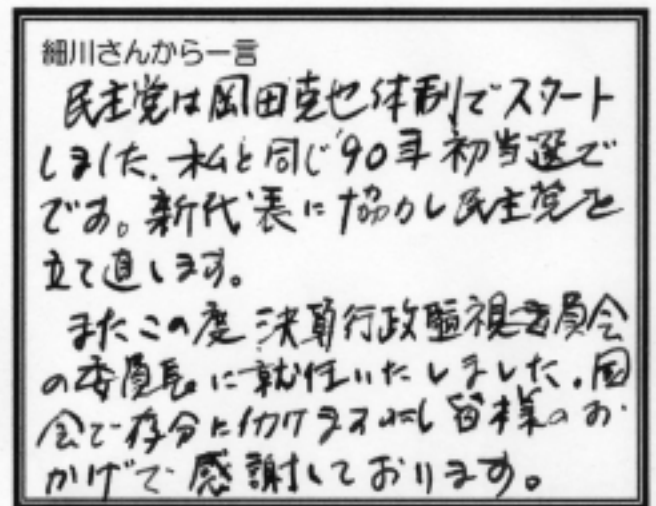 細川さんから一言
民主党は岡田克也体制でスタート
しました.私と同じ'90年初当選で
です。新代表に協力し民主党を
立て直します。
またこの度決算行政監視委員会
の委員長に就任いたしました.国
会で存分に働けますのも皆様のお
かげで感謝しております。